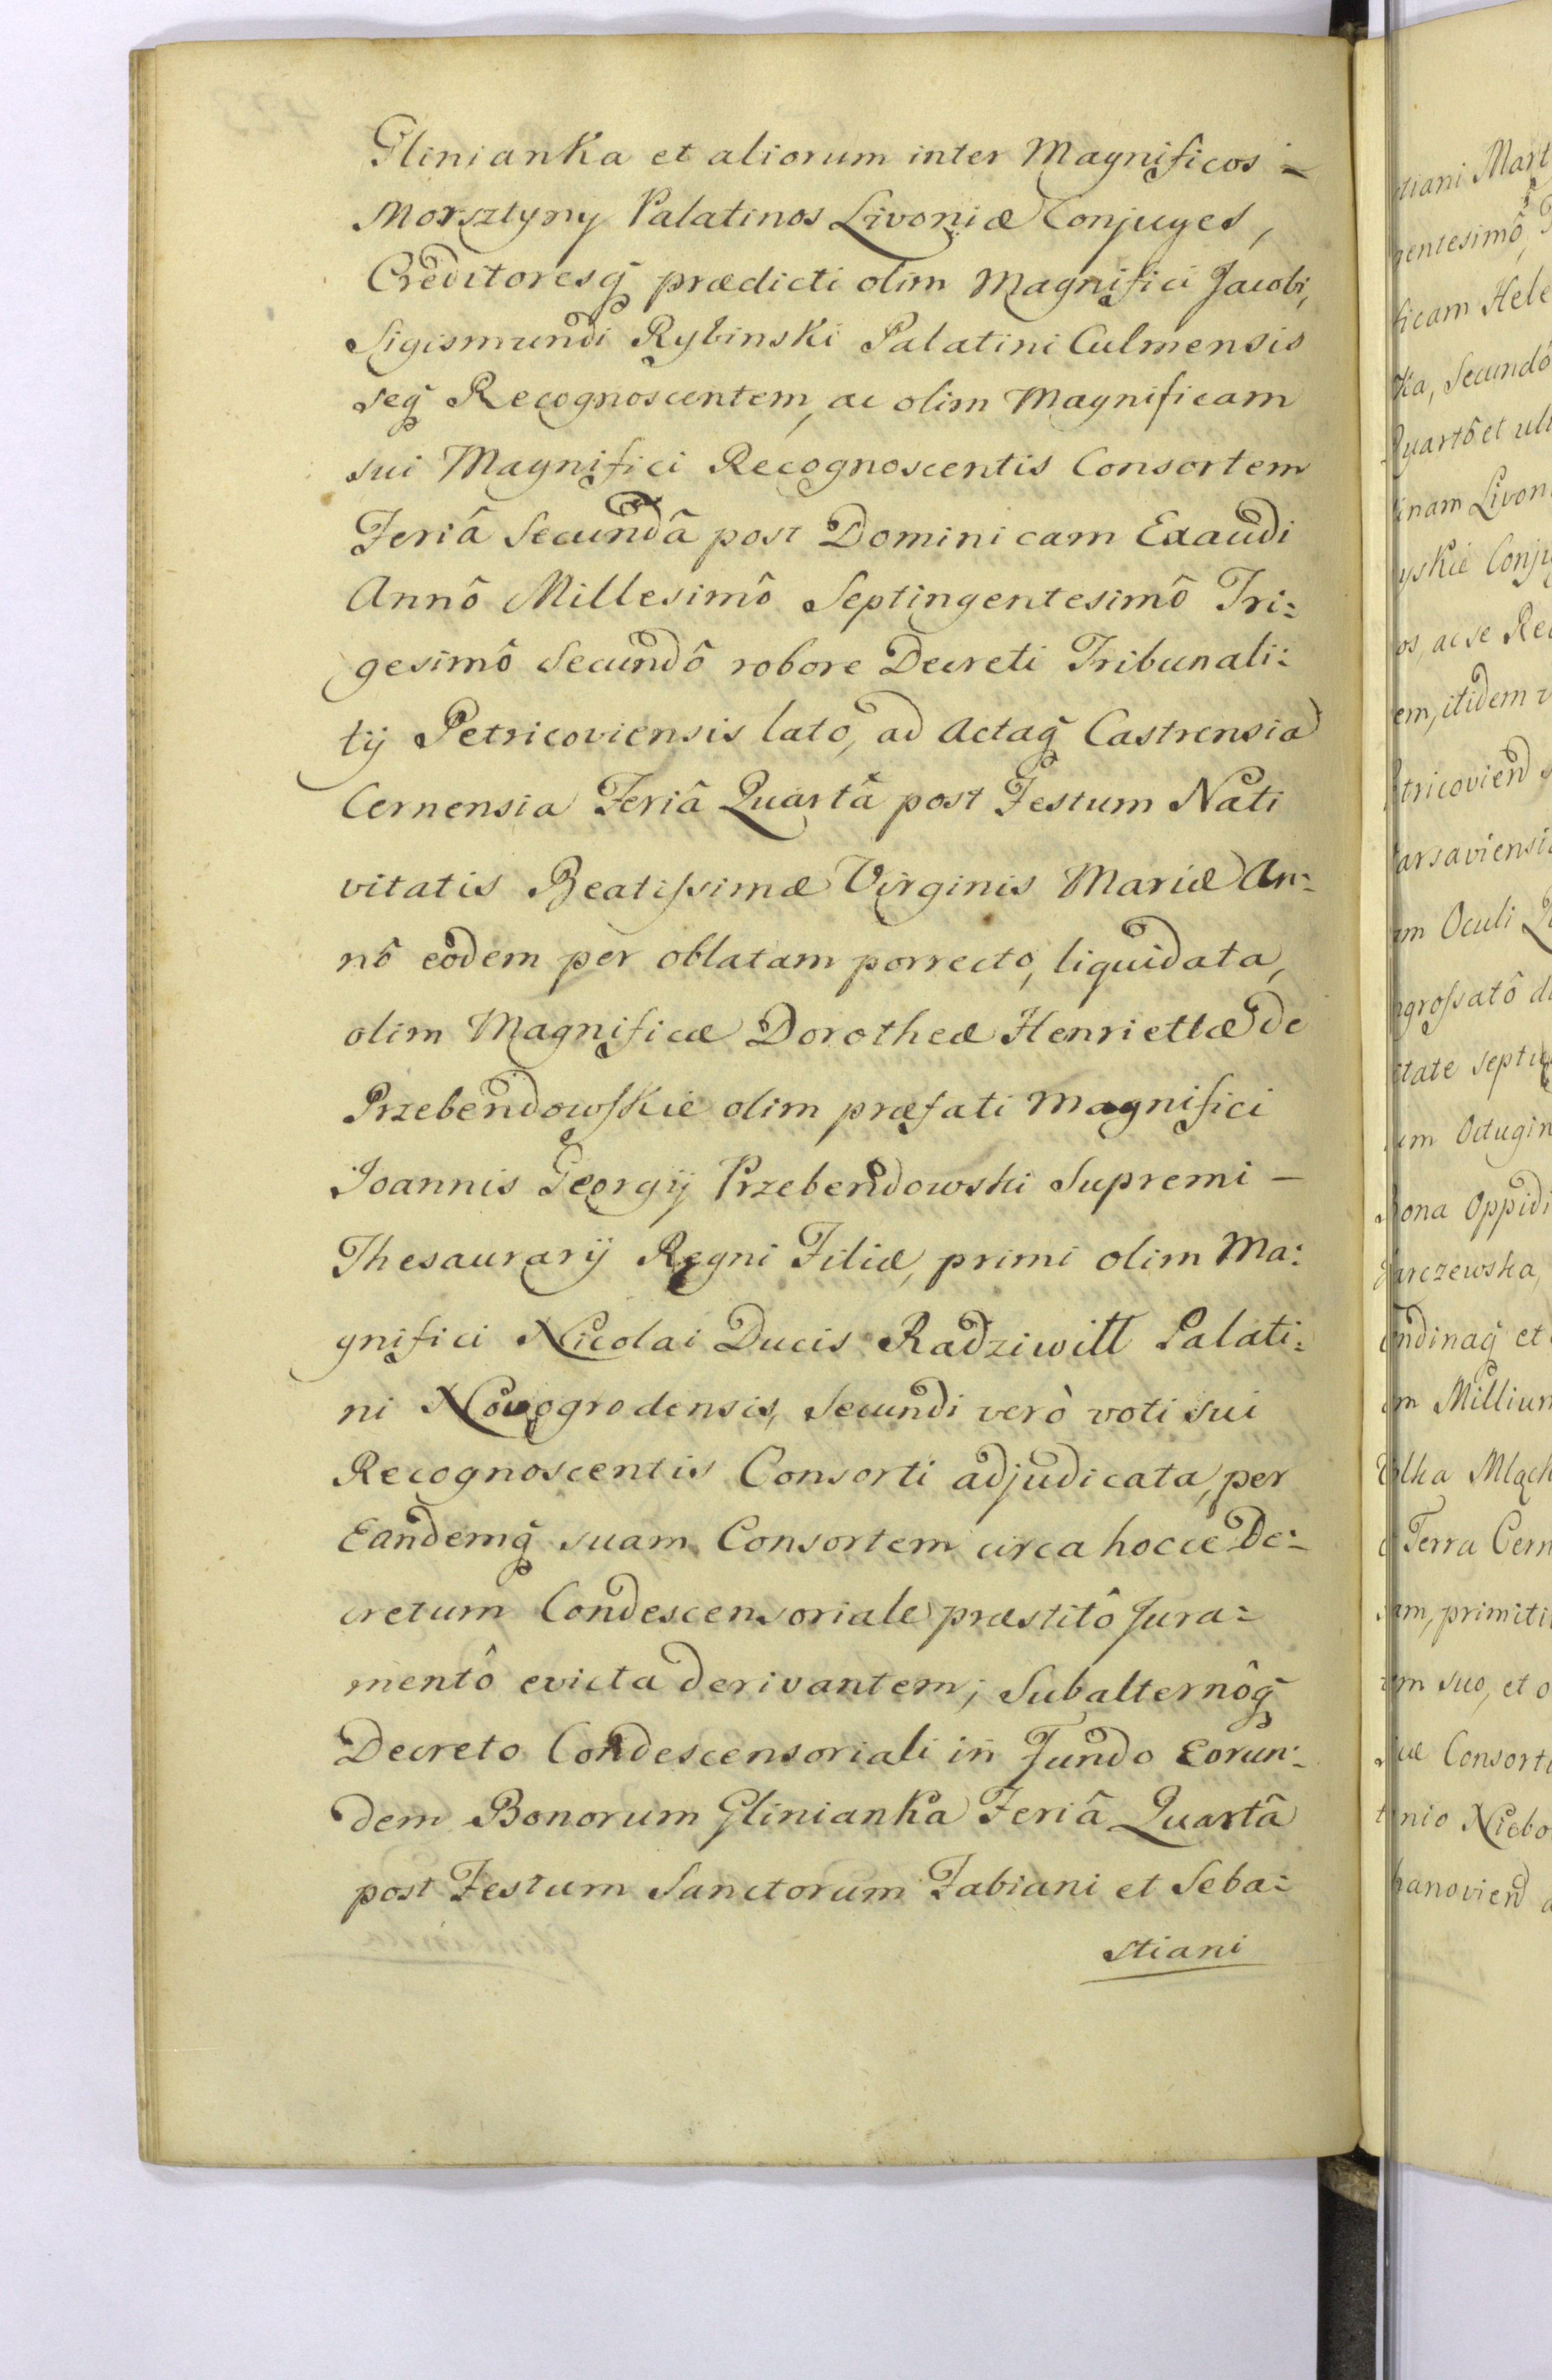 Glinianka et aliorum inter Magnificos =
Morsztyny Palatinos Livoniæ Conjuges,
Creditoresq̃ prædicti olim Magnifici Jacobi,
Sigismundi Rybinski Palatini Culmensis
seq̃ Recognoscentem, ac olim Magnificam
sui Magnifici Recognoscentis Consortem
Feriâ Secundâ post Dominicam Exaudi
Annô Millesimô Septingentesimô Tri=
gesimô Secundô robore Decreti Tribunali=
tij Petricoviensis lato, ad Actaq̃ Castrensia
Cernensia Feriâ Quartâ post Festum Nati
vitatis Beatissimæ Virginis Mariæ An=
nô eodem per oblatam porrecto, liquidata,
olim Magnificæ Dorotheæ Henriettæ de
Przebendowskie olim præfati Magnifici
Joannis Georgij Przebendowski Supremi -
Thesaurarij Regni Filiæ, primi olim Ma=
gnifici Nicolai Ducis Radziwiłł Palati=
ni Novogrodensis, Secundi verò voti sui
Recognoscentis Consorti adjudicata, per
Eandemq̃ suam Consortem circa hocce De=
cretum Condescensoriale præstitô Jura=
mentô evicta derivantem; Subalternôq̃
Decreto Condescensoriali in Fundo Eorun=
dem Bonorum Glinianka Feriâ Quartâ
post Festum Sanctorum Fabiani et Seba=
stiani
tiani Mart
gentesimô,
ficam Hele
ka, Secundô
Quartô et ult
tinam Livon
yskie Conju
os, ac se Rec
em, itidem
tricovien̄
arsaviensi
am Oculi
ngrossatô
tate septi
um Octugin
Bona Oppidi
arczewska,
ndinaq̃ et
m Millium
olka Mląc
Terra Cern
am, primiti
m suo, et
uæ Consort
nio Niebo
hanovien̄